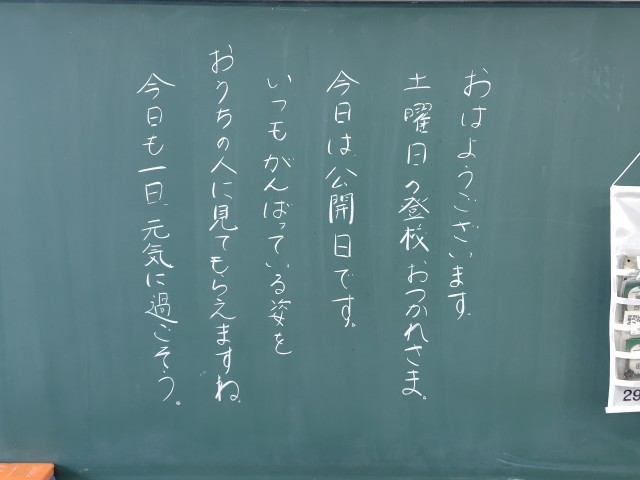 おはようございます。
土曜日の登校、おつかれさま。
今日は、公開日です。
いつもがんばっている姿を
おうちの人に見てもらえますね。
今日も一日、元気に過ごそう。
29